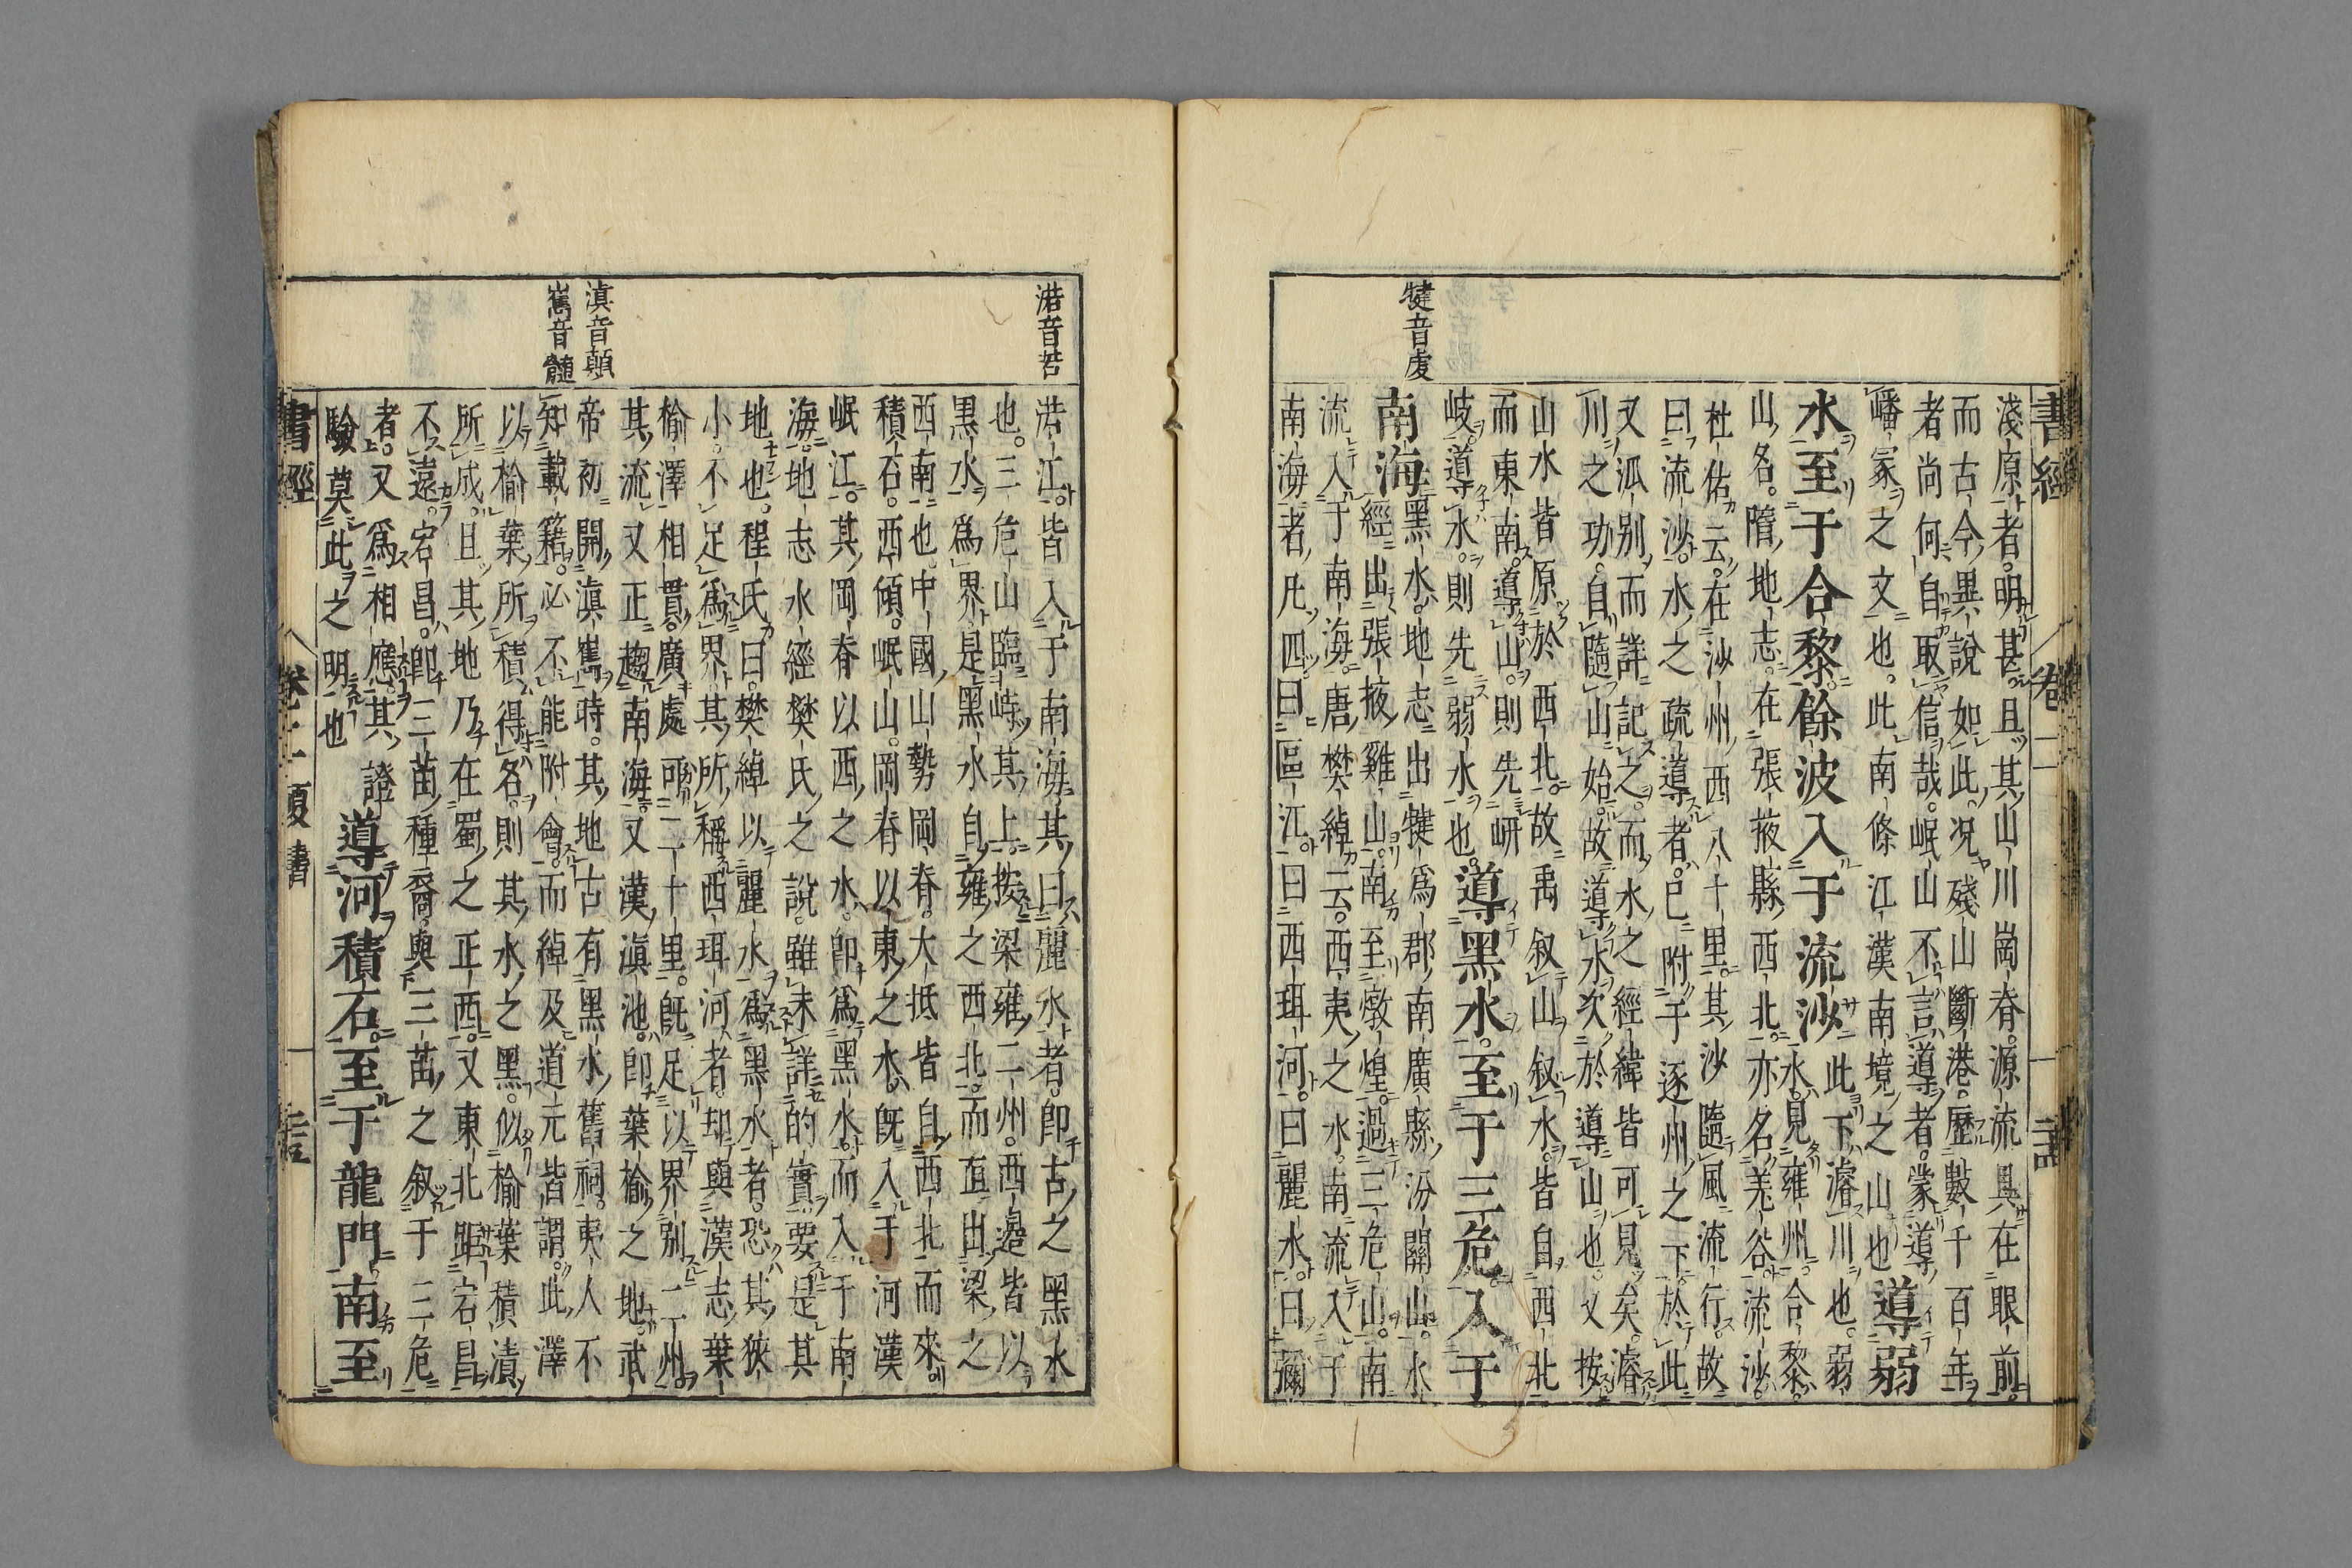 書經 卷二
淺原者。明甚。且其山川崗脊。源流具在眼前。
而古今異說如此。况殘山斷港。歷數千百年
者尚何自取信哉。岷山不言導者。蒙導
嶓冢之文也。此南條江漢南境之山也 導弱
水至于合黎餘波入于流沙
此下濬川也。弱
水見雍州。合黎
山名。隋地志。在張掖縣西北。亦名羌谷。流沙
杜佑云。在沙州西八十里。其沙隨風流行。故
曰流沙。水之疏導者。已附于逐州之下。於此
又派别而詳記之。而水之經緯皆可見矣。濬
川之功。自隨山始。故導水次於導山也。又按
山水皆原於西北。故禹叙山叙水。皆自西北
而東南。導山則先岍
岐。導水則先弱水也。
導黑水至于三危入于
犍音虔
南海
黑水。地志出犍爲郡南廣縣汾關山。水
經出張掖雞山。南至燉煌。過三危山。南
流入于南海。唐樊綽云。西夷之水。南流入于
南海者凡四。曰區江。曰西珥河。曰麗水。曰瀰
渃音若
渃江。皆入于南海。其曰麗水者。卽古之黑水
也。三危山臨峙其上。按梁雍二州。西邊皆以
黑水爲界。是黑水自雍之西北。而直出梁之
西南也。中國山勢岡脊。大抵皆自西北而來。
積石。西傾。岷山。岡脊以東之水。旣入于河漢
岷江。其岡脊以西之水。卽爲黑水。而入于南
海。地志水經樊氏之說。雖未詳的實。要是其
地也。程氏曰。樊綽以麗水爲黑水者。恐其狹
小。不足爲界。其所稱西珥河者。却與漢志葉
榆澤相貫。廣處可二十里。旣足以界别二州。
其流又正趨南海。又漢滇池。卽葉榆之地。武
滇音顛
嶲音髓
帝初開滇嶲時。其地古有黑水舊祠。夷人不
知載籍。必不能附會。而綽及道元皆謂。此澤
以榆葉所積得名。則其水之黑。似榆葉積漬
所成。且其地乃在蜀之正西。又東北距宕昌
不遠。宕昌。卽三苗種裔。與三苗之叙于三危
者。又爲相應。其證
驗莫此之明也
導河積石至于龍門南至
書經 卷二 夏書